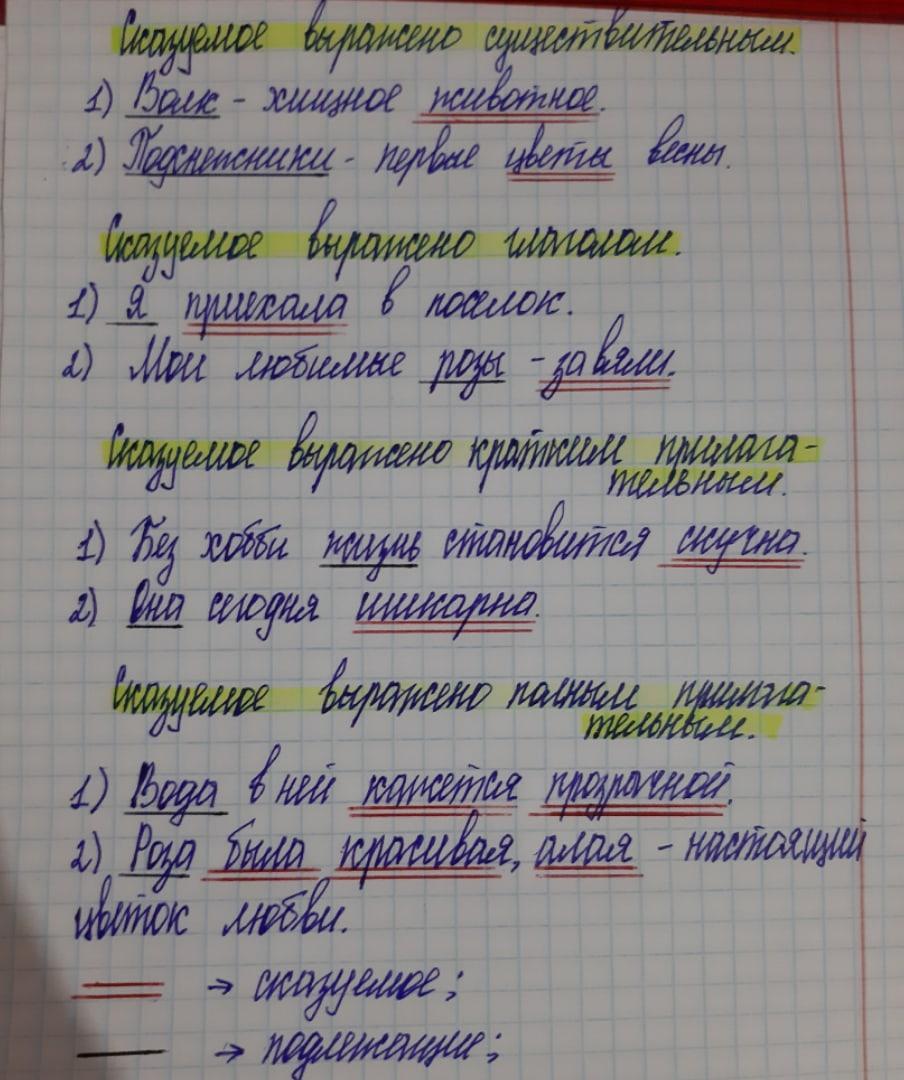 Сказуемое выражено существительным.
1) Волк - хищное животное.
2) Подснежники - первые цветы весны.
Сказуемое выражено глаголом.
1) Я приехала в поселок.
2) Мои любимые розы - завяли.
Сказуемое выражено кратким прилага-
тельным.
1) Без хобби жизнь становится скучна.
2) Она сегодня шикарна.
Сказуемое выражено полным прилага-
тельным.
1) Вода в ней кажется прозрачной.
2) Роза была красивая, алая - настоящий
цветок любви.
→ сказуемое;
→ подлежащие;